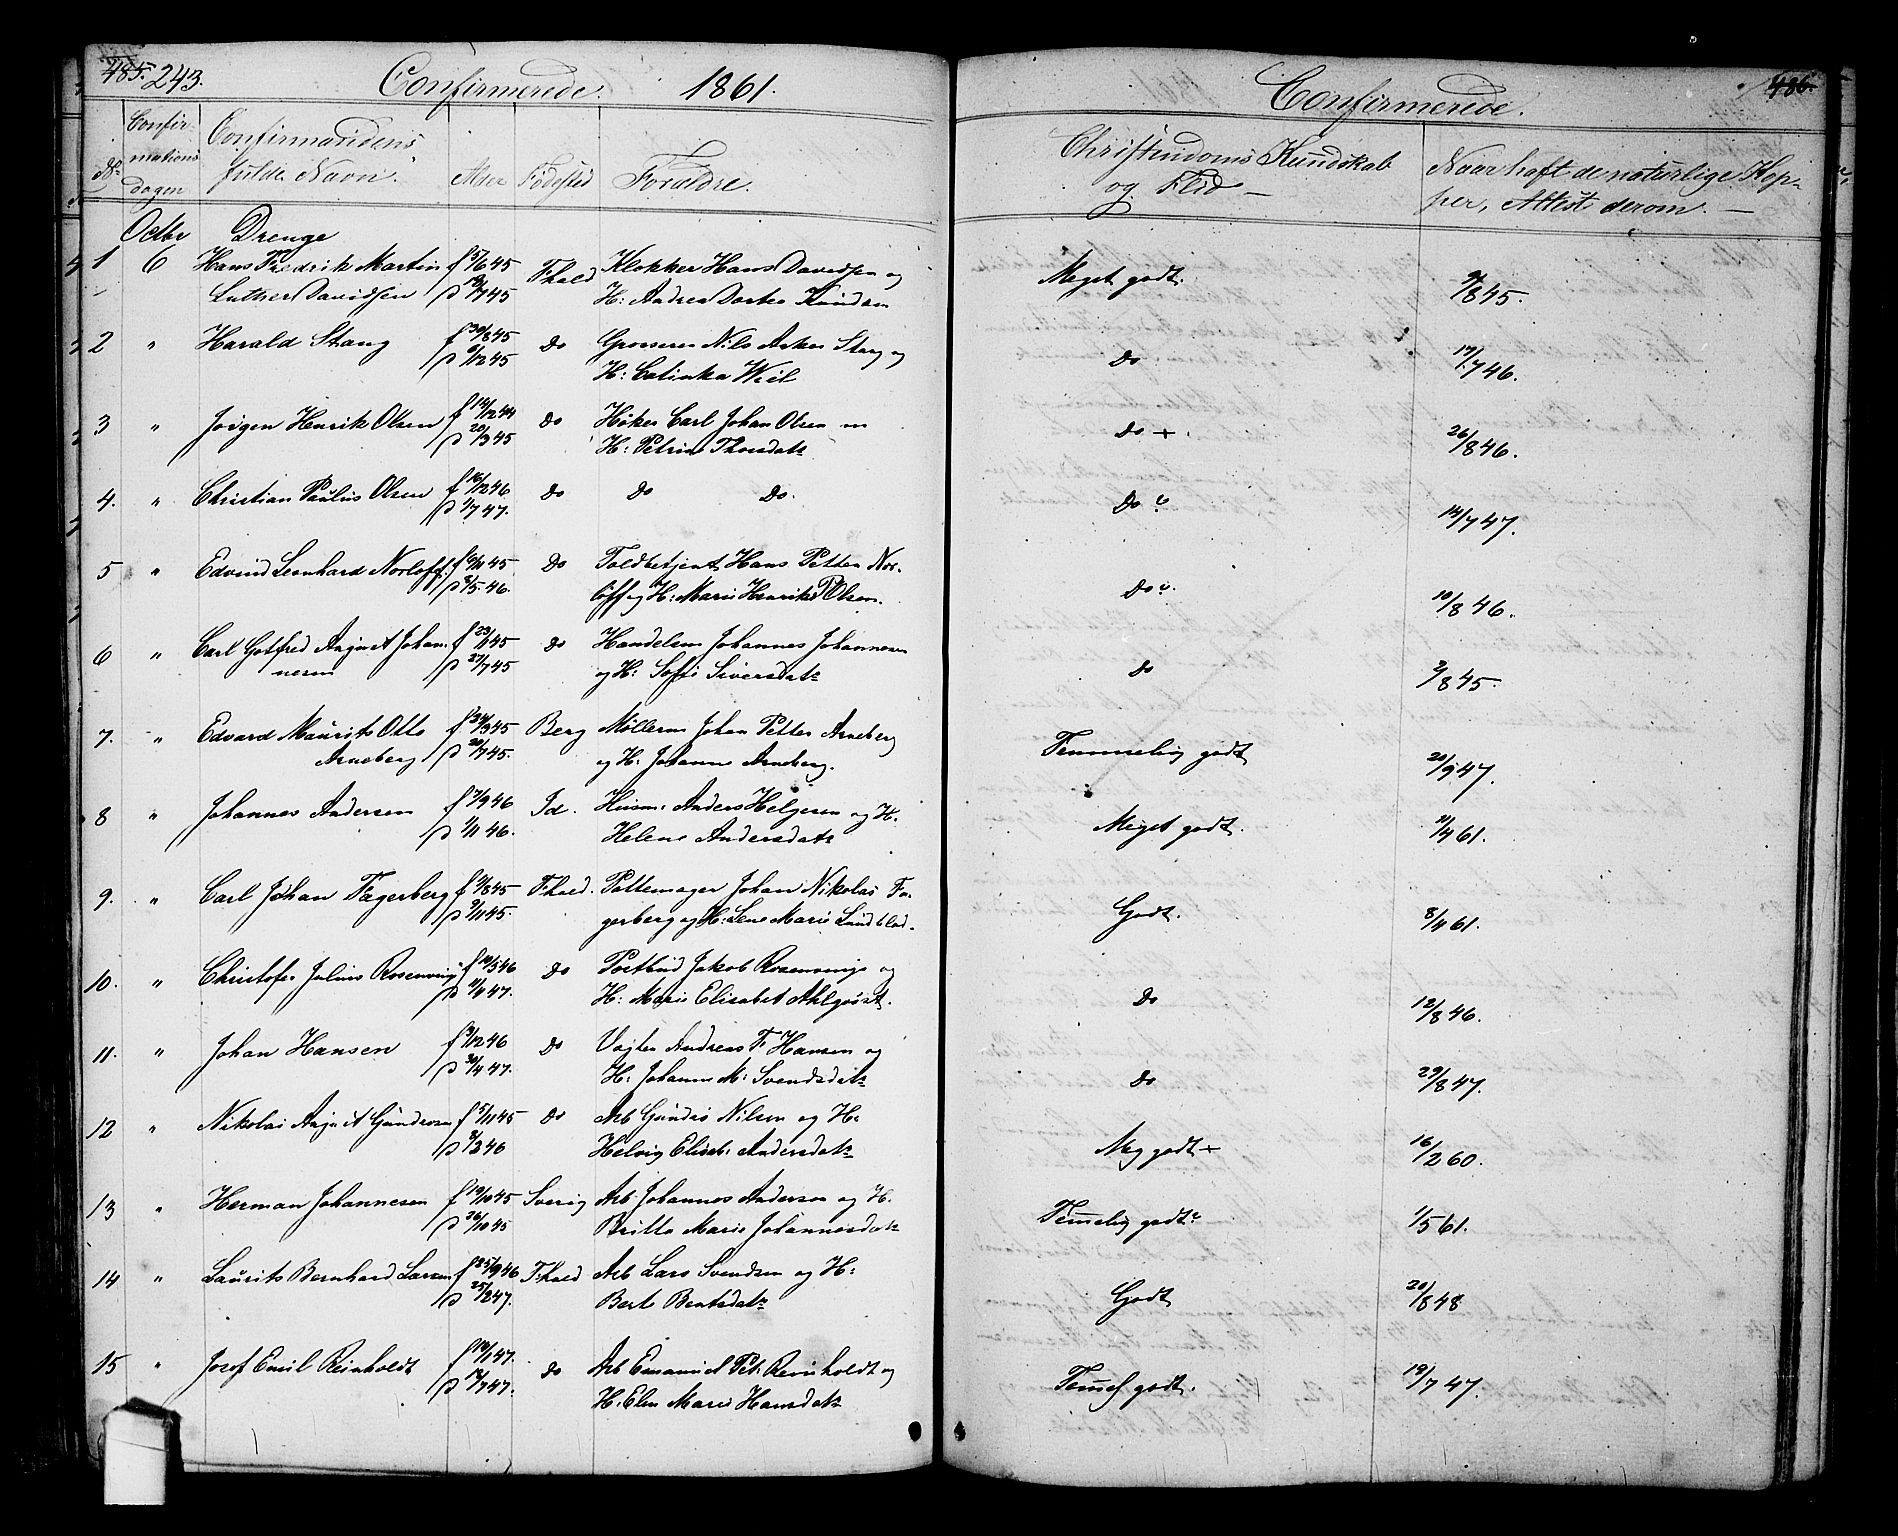 485. 243.
Confirmerede. 1861.
No. Confirmations dagen Confirmandens fulde Navn. Alder Fødested Forældre.
Octbr Drenge
1 6 Hans Fredrik Martin f 5/6 45 Fhald Klokker Hans Davidsen og
Luther Davidsen p 45 H: Andrea Dorthea Knudsen
2 " Harald Stang f 30/8 45 Do Grosserer Nils Anker Stang og
p 9/12 45 H: Catinka Wiel
3 " Jørgen Henrik Olsen f 14/12 44 Do Høker Carl Johan Olsen
p 20/3 45 H: Petrine Thorsdatr
4. " Christian Paulus Olsen f 16/12 46 Do Do Do.
p 4/7 47.
5 " Edvind Leonhard Norløff. f 9/11 45 Do Toldbetjent Hans Petter Nor-
p 3/5. 46. løff og H: Marie Henrike Olsen.
6 " Carl Gotfred August Johan- f 23/1 45 Do Handelsm Johannes Johannesen
nesen p 27/7 45 og H: Sofie Siversdatr
7. " Edvard Maurits Otto f 31/3 45 Berg Møllerm Johan Petter Arneberg
Arneberg p 20/7 45. og H: Johanne Arneberg.
8 " Johannes Andersen f 7/9 46 Id. Husm: Anders Helgesen og H.
p 1/11 46. Helene Andersdatr
9. " Carl Johan Fagerberg f 9/8 45 Fhald. Pottemager Johan Nikolai Fa-
p 9/11 45. gerberg og H: Lene Marie Lundblad.
10. " Christofer Julius Rosenvinge f 19/5 46 Do Postbud Jakob Rosenvinge og
p 11/4 47. H: Marie Elisabet Ahlqvist.
11. " Johan Hansen f 3/12 46 Do Vægter Andreas F. Hansen og
p 30/4 47. H: Johanne M: Svendsdatr
12 " Nikolai August Gundersen f 5/11 45 Do Arb Gunder Nilsen og H:
p 8/3 46 Helvig Elisab: Andersdatr
13 " Herman Johannesen f 19/10 45 Sverig Arb Johannes Anderson og H.
p 26/10 45 Britta Maria Johannesdatr
14 " Laurits Bernhard Larsen f 25/9 46 Fhald Arb Lars Svendsen og H:
p 25/2 47. Berte Berntsdatr
15 " Josef Emil Reinholdt f 19/1 47. Do Arb Emanuel Pet: Reinholdt og
p 17/7 47. H: Elen Marie Hansdatr
486.
Confirmerede.
Christendoms Kundskab og Flid — Naar haft de naturlige Kopper, Attest derom. —
Meget godt. 9/8 45.
Do 17/7 46.
Do +. 26/8 46.
Do 14/7 47.
Do 10/8 46.
Do 2/8 45.
Temmelig godt 20/9 47.
Meget godt. 11/4 61.
Godt. 8/4 61.
Do 12/8 46.
Do 29/8 47.
Meg godt + 16/2 60.
Temelig godt 1/5 61.
Godt 20/8 48
Temel godt. 19/7 47.